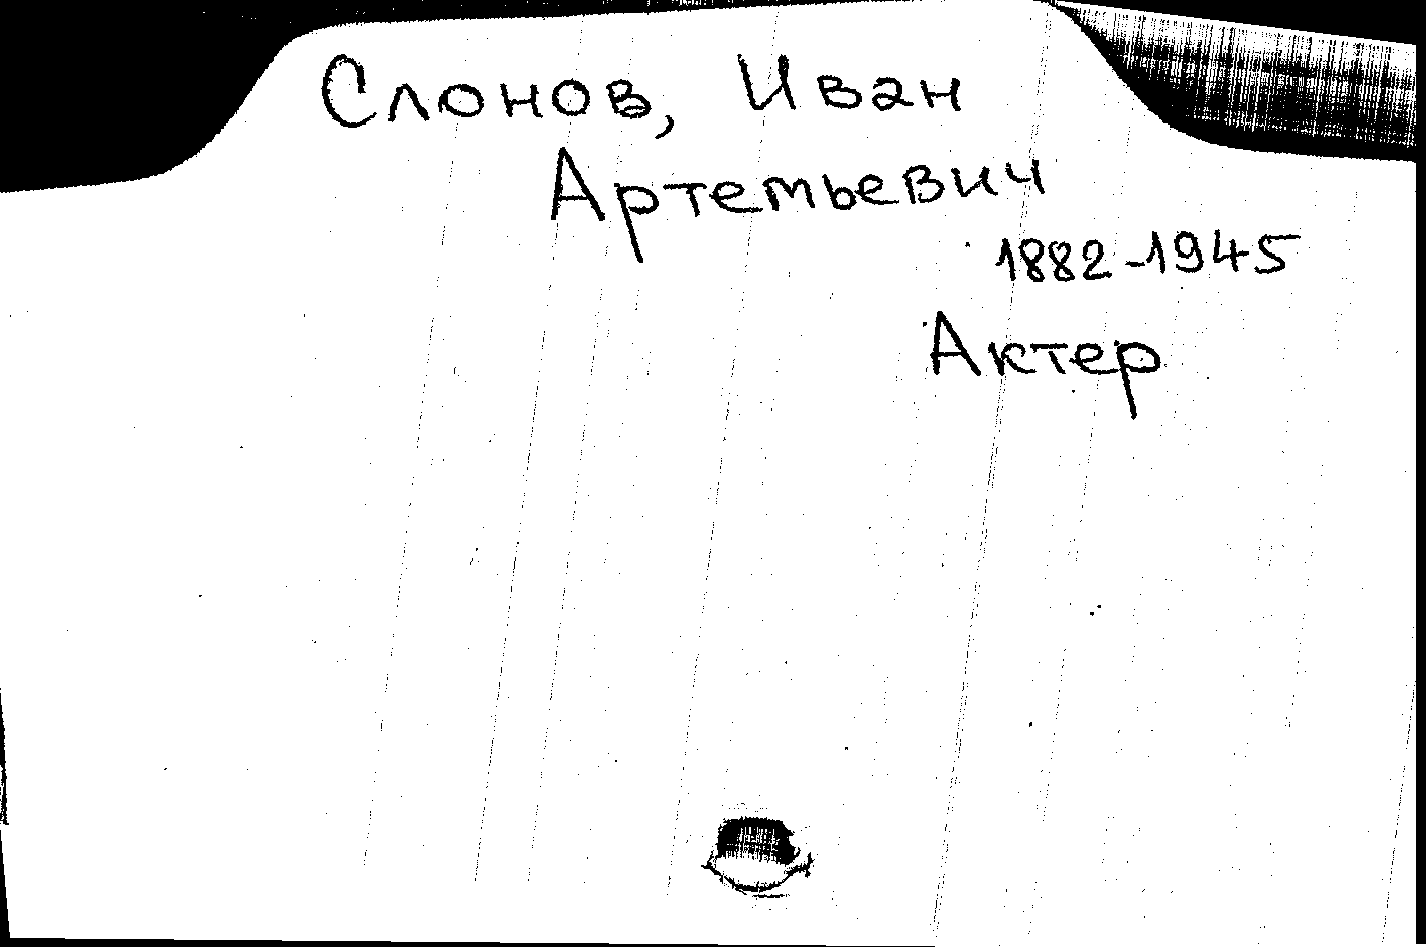 Слонов, Иван
Артемьевич
1882-1945
Актер